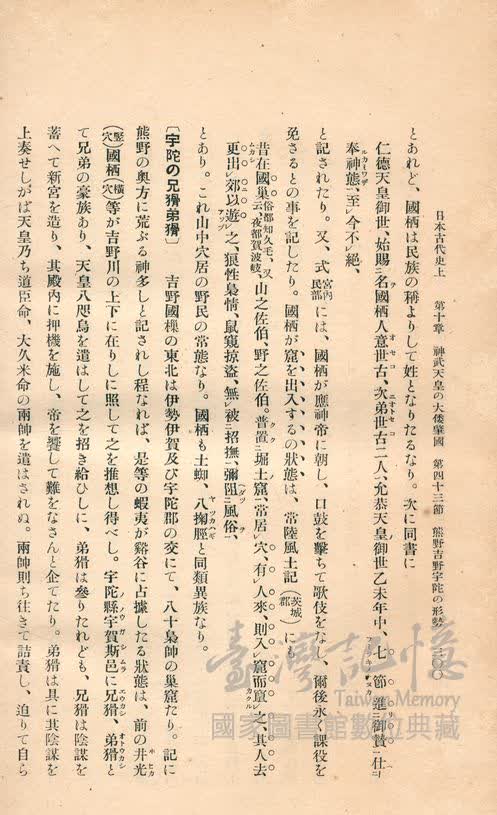 日本古代史上　第十章　神武天皇の大倭肇國　第四十三節　熊野吉野宇陀の形勢　三〇〇
とあれど、國栖は民族の稱よりして姓となりたるなり。次に同書に
仁德天皇御世、始賜名國栖人意世古、次弟世古二人、允恭天皇御世乙未年中、七節進御贄仕
奉神態、至今不絕、
と記されたり。又、式宮内民部には、國栖が應神帝に朝し、口鼓を擊ちて歌伎をなし、爾後永く課役を
免さるとの事を記したり。國栖が窟を出入するの狀態は、常陸風土記(茨城郡)にも
昔在國巢俗都知久毛、又云、夜都賀波岐、山之佐伯、野之佐伯。普置堀土窟、常居穴、有人來、則入窟而竄之、其人去
更出郊以遊之、狼性梟情、鼠窺掠盜、無被招撫、彌阻風俗、
とあり。これ山中穴居の野民の常態なり。國栖も土蜘、八掬脛と同類異族なり。
〔宇陀の兄猾弟猾〕　吉野國樔の東北は伊勢伊賀及び宇陀郡の交にて、八十梟帥の巢窟たり。記に
熊野の奧方に荒ぶる神多しと記されし程なれば、是等の蝦夷が谿谷に占據したる狀態は、前の井光
(竪穴)國栖(橫穴)等が吉野川の上下に在りしに照して之を推想し得べし。宇陀縣宇賀斯邑に兄猾、弟猾と
て兄弟の豪族あり、天皇八咫烏を遣はして之を招き給ひしに、弟猾は參りたれども、兄猾は陰謀を
蓄へて新宮を造り、其殿内に押機を施し、帝を饗して難をなさんと企てたり。弟猾は具に其陰謀を
上奏せしがば天皇乃ち道臣命、大久米命の兩帥を遣はされぬ。兩帥則ち往きて詰責し、迫りて自ら
臺灣記憶
Taiwan Memory
國家圖書館數位典藏